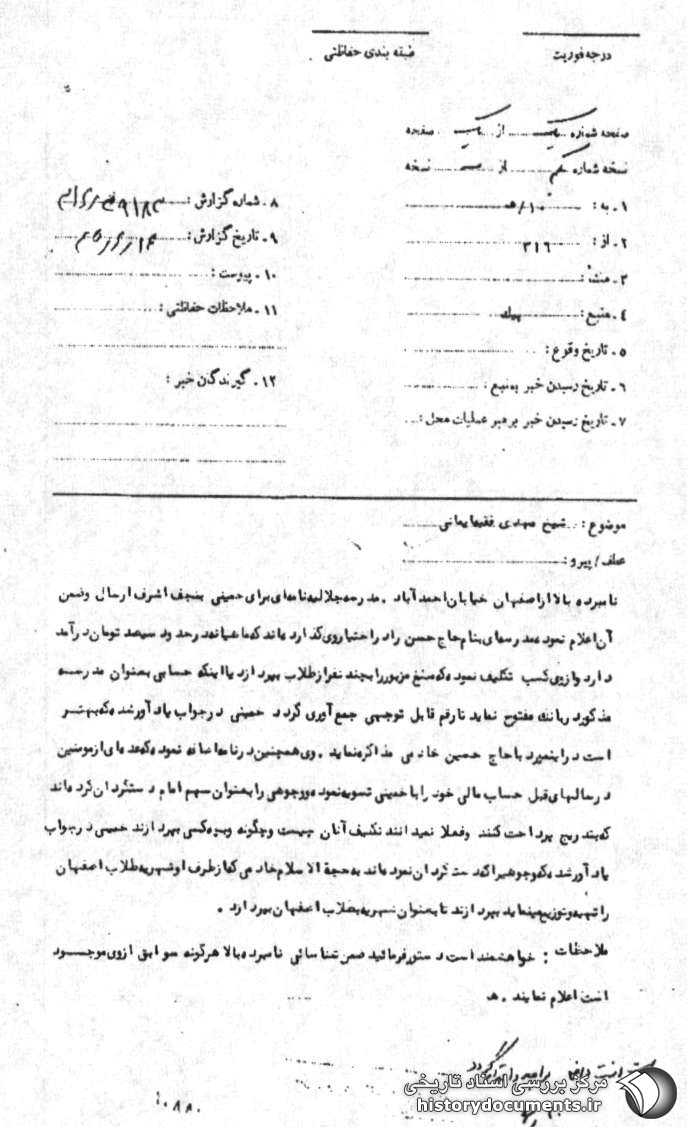 درجه فوریت
طبقه بندی حفاظتی
صفحه شماره یک از یک صفحه
نسخه شماره یکم از نسخه
۱- به : ۱۰/ه
۲- از : ۳۱۶
۳- منشأ :
۴- منبع : پیک
۵- تاریخ وقوع :
۶- تاریخ رسیدن خبر به منبع :
۷- تاریخ رسیدن خبر برهبر عملیات محل :
۸- شماره گزارش :
۹- تاریخ گزارش :
۱۰- پیوست :
۱۱- ملاحظات حفاظتی :
۱۲- گیرندگان خبر :
موضوع : شیخ مهدی فقیه ایمانی
عطف / پیرو :
نامبرده بالا از اصفهان خیابان احمدآباد . مدرسه جلالیه نامه‌ای برای خمینی بنجف اشرف ارسال وضمن
آن اعلام نموده مدرسه‌ای بنام حاج حسن را در اختیار وی گذارده‌اند که ماهیانه در حدود سیصد تومان درآمد
دارد و از وی کسب تکلیف نموده که مبلغ مزبور را بچند نفر از طلاب بپردازد یا اینکه حسابی بعنوان مدرسه
مذکور در بانک مفتوح نماید تا رقم قابل توجهی جمع آوری گردد خمینی در جواب یادآور شده که بهتر
است در اینمورد با حاج حسین خادمی مذاکره نماید . وی همچنین در نامه اضافه نموده که عده‌ای از مومنین
در سالهای قبل حساب مالی خود را با خمینی تسویه نموده و وجوهی را بعنوان سهم امام دستگردان کرده‌اند
که بتدریج پرداخت کنند وفعلا نمیدانند تکلیف آنان چیست وچگونه وبچه کسی بپردازند خمینی در جواب
یادآور شده که وجوهیرا که دستگردان نموده‌اند به حجة الاسلام خادمی که از طرف او شهریه طلاب اصفهان
را تهیه و توزیع مینماید بپردازند تا بعنوان شهریه بطلاب اصفهان بپردازد .
ملاحظات : خواهشمند است دستور فرمائید ضمن شناسائی نامبرده بالا هرگونه سوابق از وی موجود
است اعلام نمایند . ه
مرکز بررسی اسناد تاریخی
historydocuments.ir